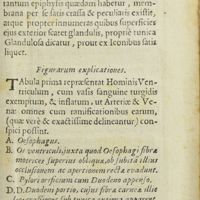 rantum epiphylis quædam habetur, mem-
brana per se satis crassa & peculiaris existit,
atque propter innumeras quibus superficies
ejus exterior scatet glandulis, propriè tunica
Glandulosa dicatur, prout ex Iconibus satis
liquet.
Figurarum explicationes.
Tabula prima repræsentat Hominis Ven-
triculum, cum vasis sanguine turgidis
exemptum, & inflatum, ut Arteriæ & Ve-
næ: omnes cum ramificationibus earum,
(quæ verè & exactissimè delineantur) con-
spici possint.
A. Oesophagus.
B. Os ventriculi juxta quod Oesophagi fibræ
motrices superius obliquæ, ob subitã illius
occlusionem ac apertionem rectæ evadunt.
C. Pylorus orificium cum Duodeno appenso.
D. D. Duodeni portio, cujus fibræ carneæ illic